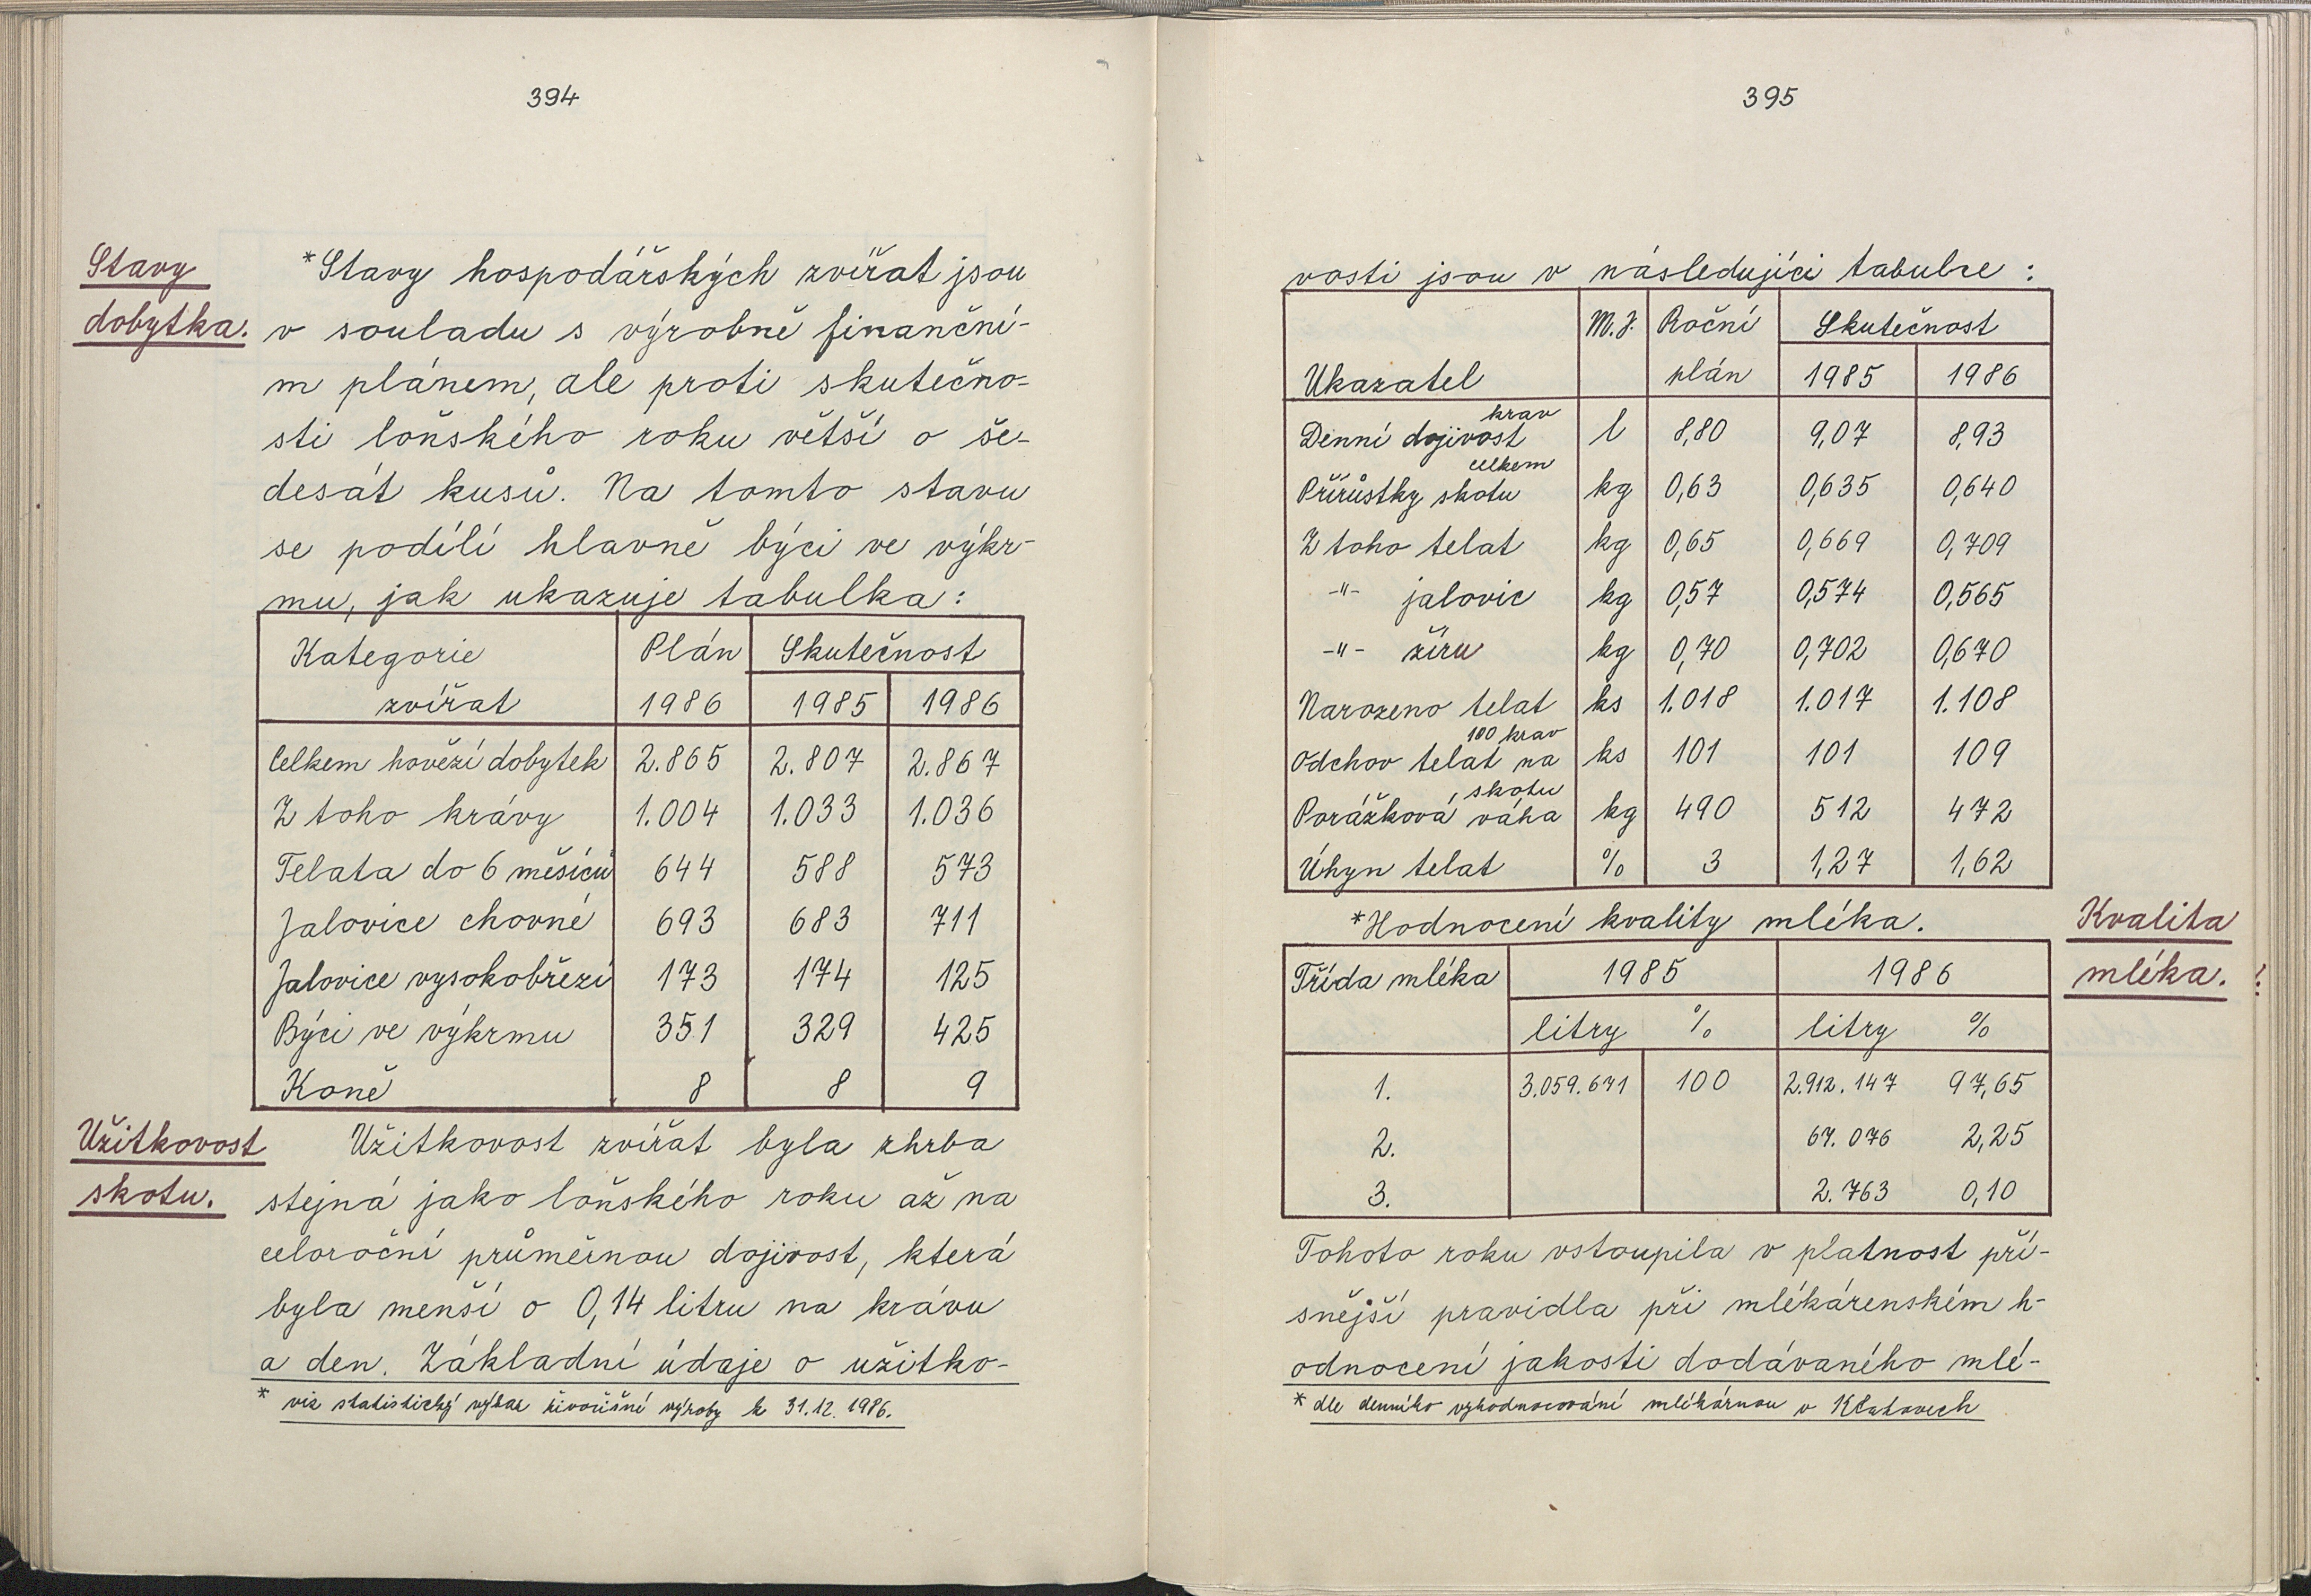 394
Stavy
dobytka.
*Stavy hospodářských zvířat jsou
v souladu s výrobně finanční-
m plánem, ale proti skutečno-
sti loňského roku větší o še-
desát kusů. Na tomto stavu
se podílí hlavně býci ve výkr-
mu, jak ukazuje tabulka:
Kategorie zvířat Plán 1986 Skutečnost 1985 1986
Celkem hovězí dobytek 2.865 2.807 2.867
Z toho krávy 1.004 1.033 1.036
Telata do 6 měsíců 644 588 573
Jalovice chovné 693 683 711
Jalovice vysokobřezí 173 174 125
Býci ve výkrmu 351 329 425
Koně 8 8 9
Užitkovost
skotu.
Užitkovost zvířat byla zhrba
stejná jako loňského roku až na
celoroční průměrnou dojivost, která
byla menší o 0,14 litru na krávu
a den. Základní údaje o užitko-
* viz statistický výkaz živočišné výroby k 31.12.1986.
395
vosti jsou v následující tabulce :
Ukazatel M.J. Roční plán Skutečnost 1985 1986
Denní dojivost krav l 8,80 9,07 8,93
Přírůstky skotu celkem kg 0,63 0,635 0,640
Z toho telat kg 0,65 0,669 0,709
-"- jalovic kg 0,57 0,574 0,565
-"- žíru kg 0,70 0,702 0,670
Narozeno telat ks 1.018 1.017 1.108
Odchov telat na 100 krav ks 101 101 109
Porážková váha skotu kg 490 512 472
Úhyn telat % 3 1,27 1,62
*Hodnocení kvality mléka.
Kvalita
mléka.
Třída mléka 1985 1986
litry % litry %
1. 3.059.671 100 2.912.147 97,65
2. 67.076 2,25
3. 2.763 0,10
Tohoto roku vstoupila v platnost pří-
snější pravidla při mlékárenském h-
odnocení jakosti dodávaného mlé-
* dle denního vyhodnocování mlékárnou v Klatovech